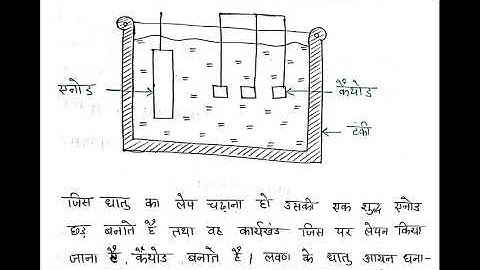 एनोड
कैथोड
टंकी
जिस धातु का लेप चढ़ाना हो उसकी एक शुद्ध एनोड
छड़ बनाते है तथा वह कार्यखंड जिस पर लेपन किया
जाना है, कैथोड बनाते है। लवण के धातु आयन धना-